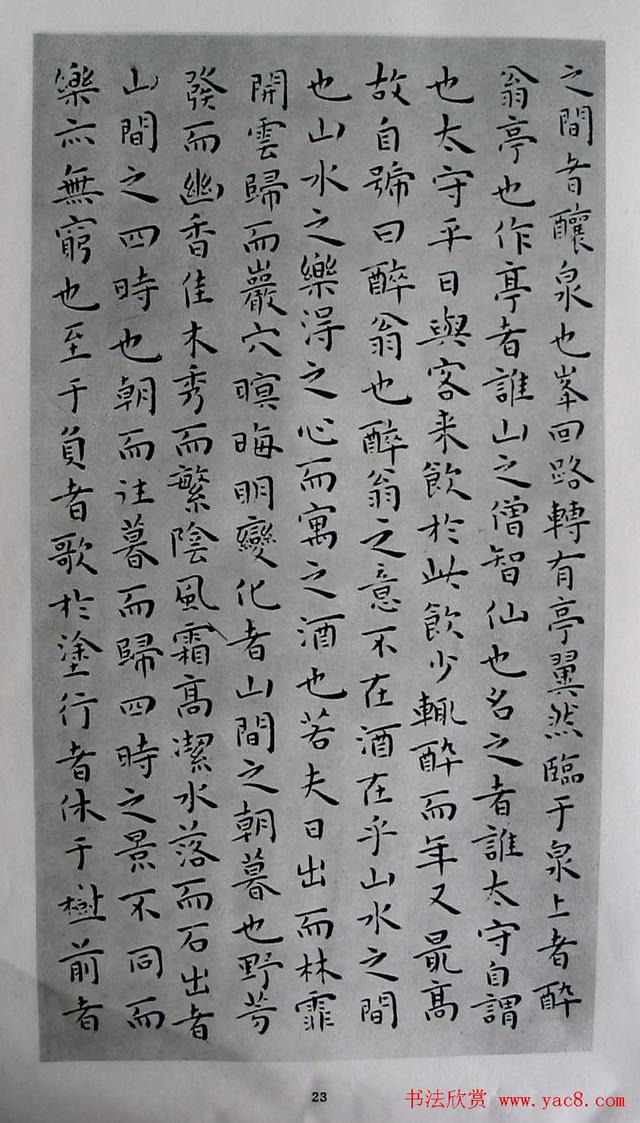 之間者釀泉也峯回路轉有亭翼然臨于泉上者醉
翁亭也作亭者誰山之僧智仙也名之者誰太守自謂
也太守平日與客来飲於此飲少輒醉而年又最高
故自號曰醉翁也醉翁之意不在酒在乎山水之間
也山水之樂得之心而寓之酒也若夫日出而林霏
開雲歸而巖穴暝晦明變化者山間之朝暮也野芳
發而幽香佳木秀而繁陰風霜高潔水落而石出者
山間之四時也朝而往暮而歸四時之景不同而
樂亦無窮也至于負者歌於塗行者休于樹前者
23
书法欣赏 www.yac8.com